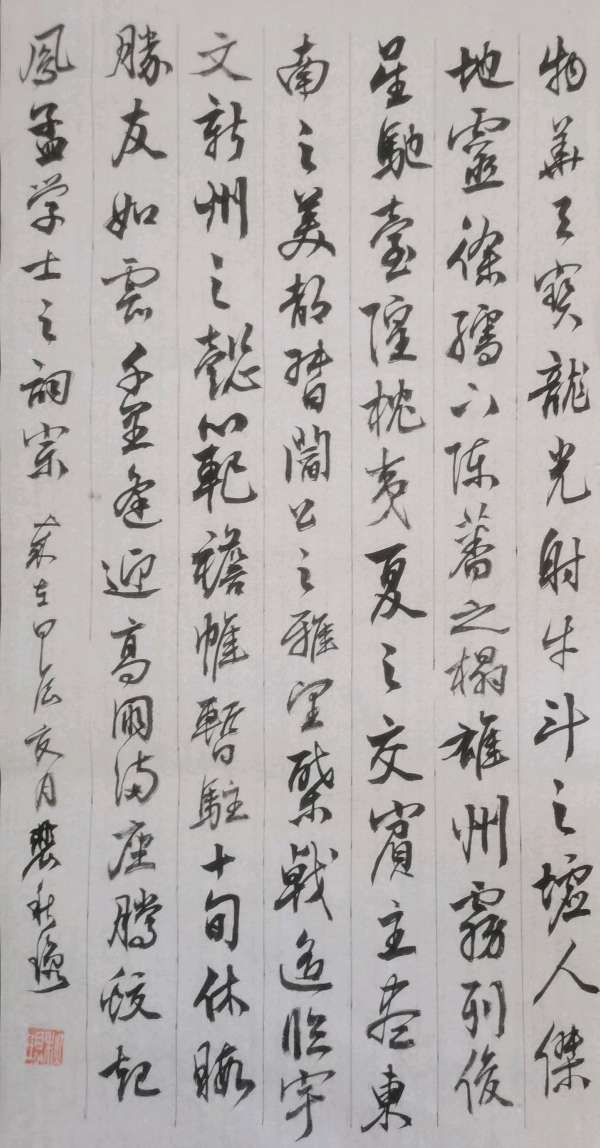 物華天寶龍光射牛斗之墟人傑
地靈徐孺下陳蕃之榻雄州霧列俊
星馳臺隍枕夷夏之交賓主盡東
南之美都督閻公之雅望棨戟遙臨宇
文新州之懿範襜帷暫駐十旬休暇
勝友如雲千里逢迎高朋滿座騰蛟起
鳳孟学士之詞宗 歲在甲辰夏月